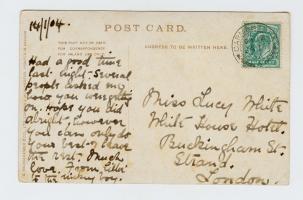 14/1/04.
POST CARD.
THIS PART MAY BE USED
FOR CORRESPONDENCE
ADDRESS TO BE WRITTEN HERE.
Had a good time
last night. Several
people asked my
how you were getting
on. Hope you like it
alright, however
you can only do
your best & leave
the rest. Much
love. From
to the boy.
Miss Lucy White
White House Hotel.
Buckingham St.
Strand.
London.